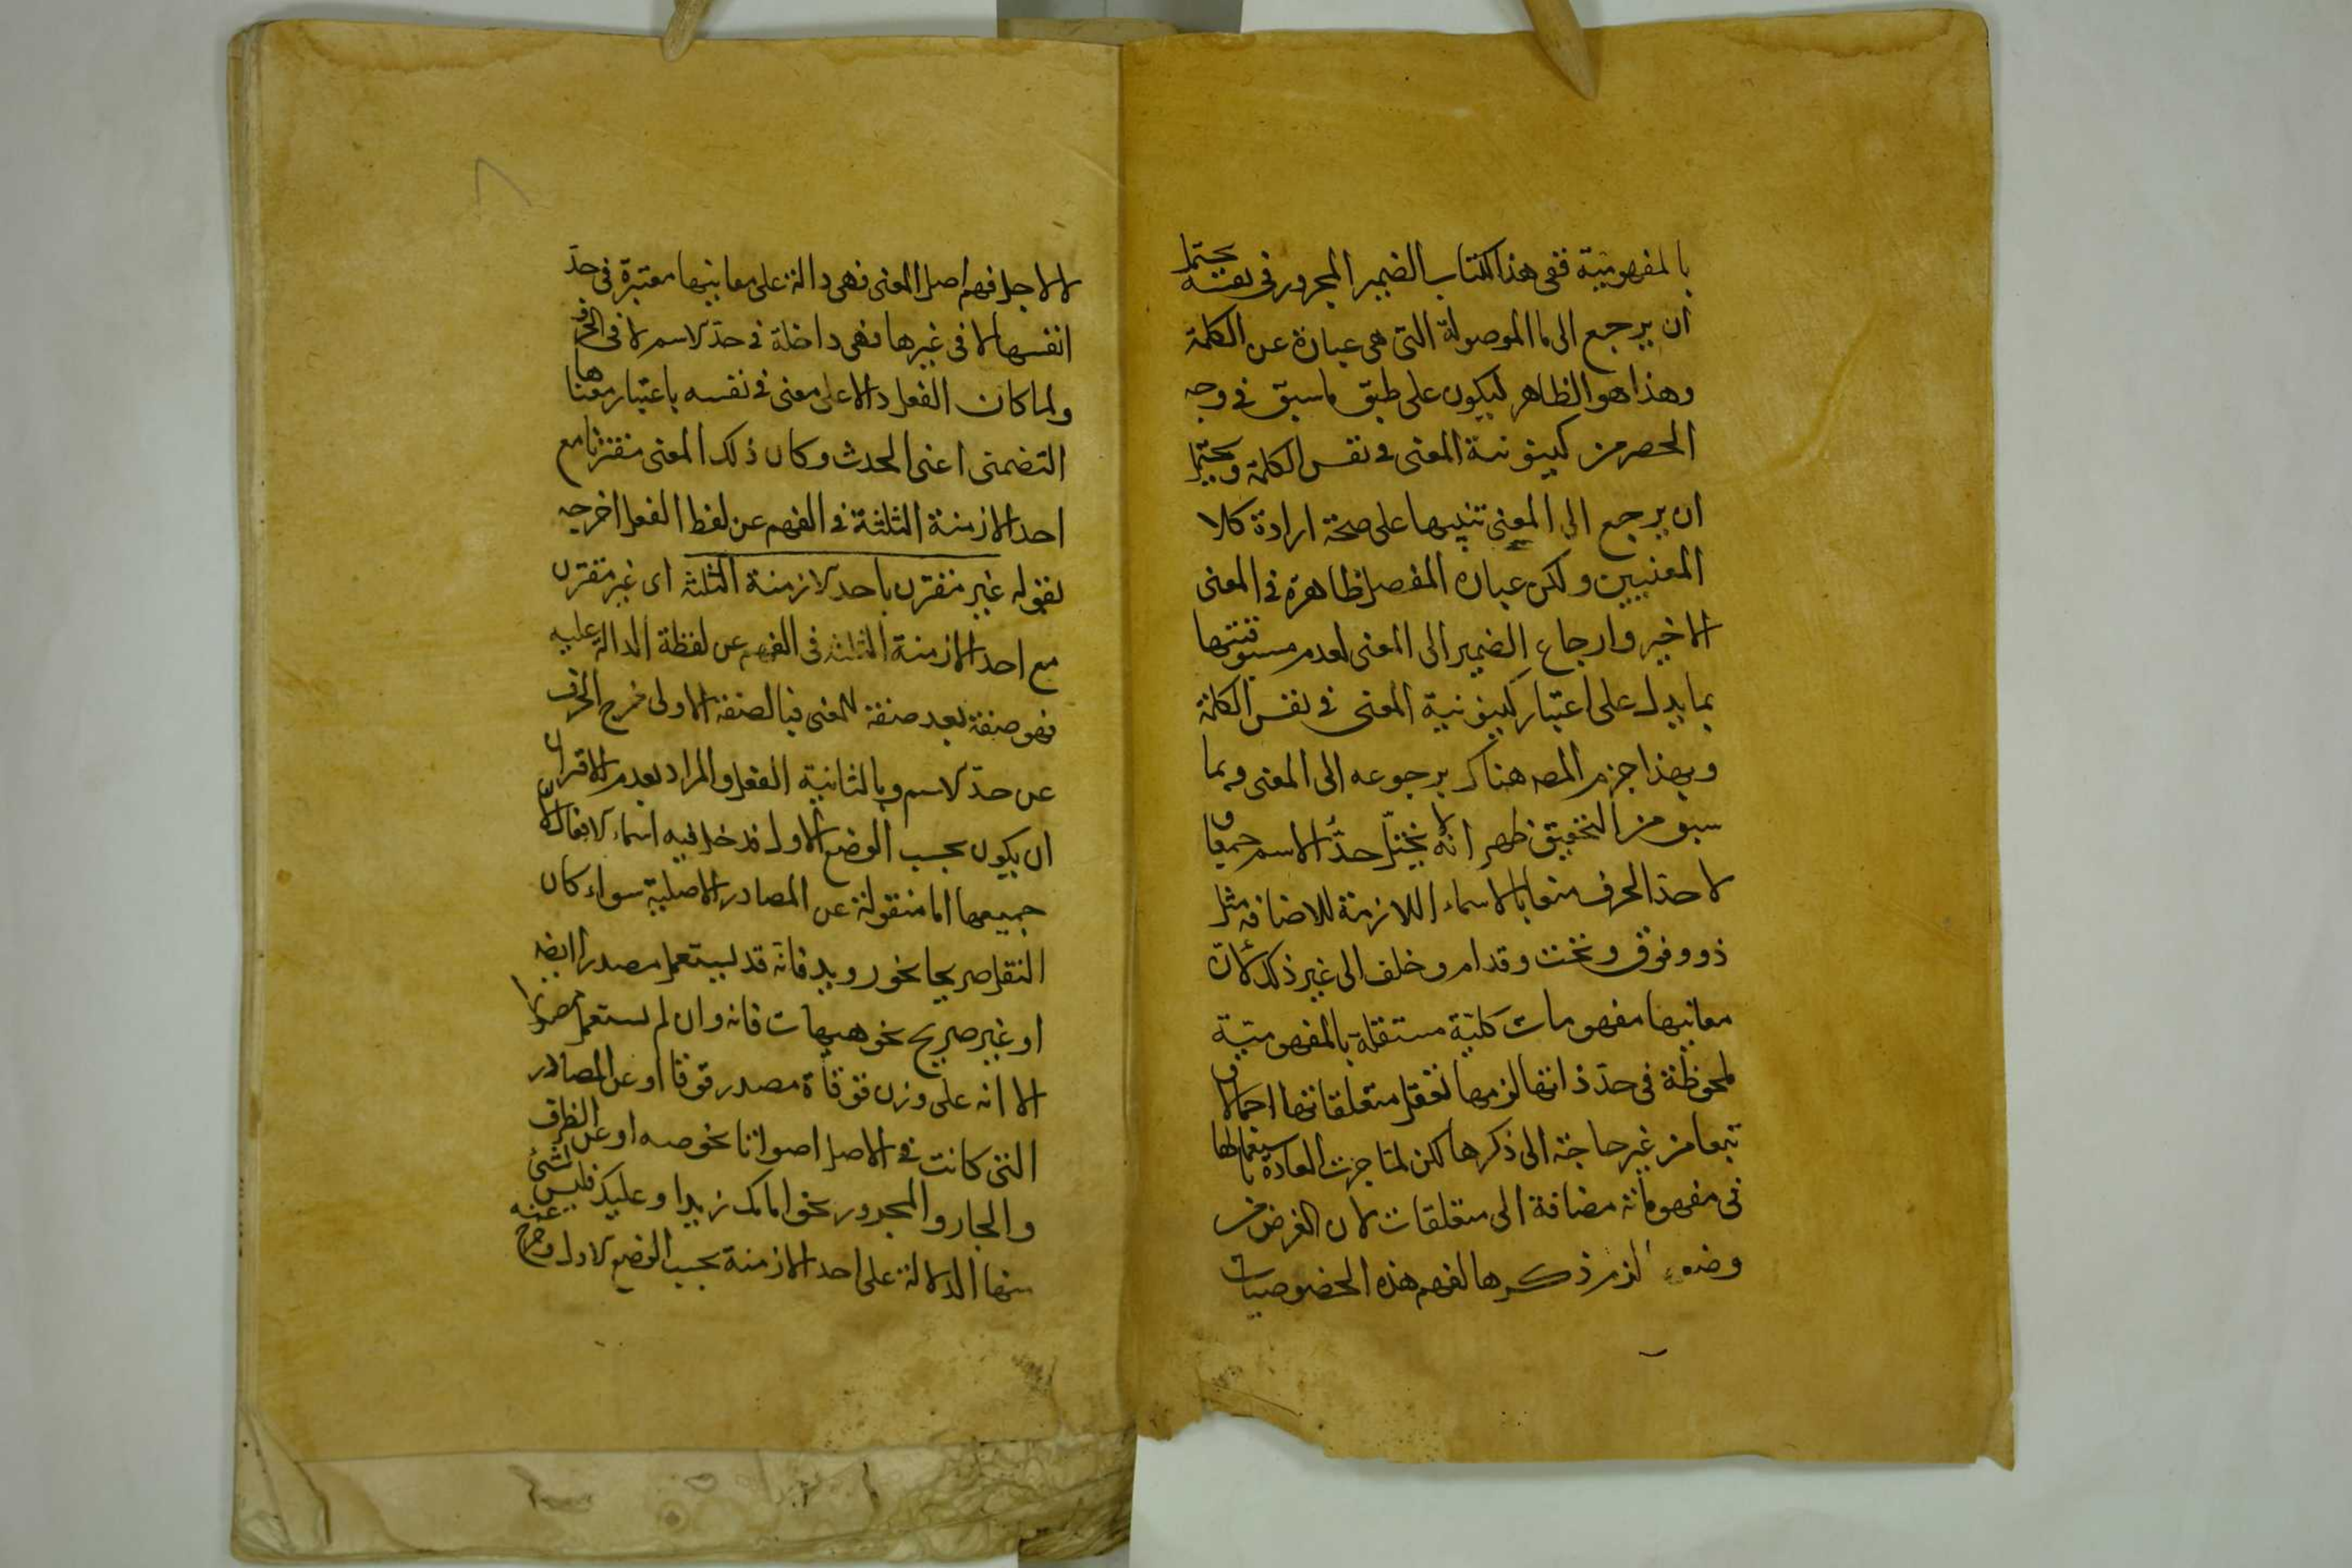 بالمفهومية ففى هذا الكتاب الضمير المجرور فى نفسه يحتمل
ان يرجع الى ما الموصولة التى هى عبارة عن الكلمة
وهذا هو الظاهر ليكون على طبق ما سبق فى وجه
الحصر من كينونة المعنى فى نفس الكلمة ويحتمل
ان يرجع الى المعنى تنبيها على صحة ارادة كلا
المعنيين ولكن عبارة المفصل ظاهرة فى المعنى
الاخير وارجاع الضمير الى المعنى لعدم مسبوقيتها
بما يدل على اعتبار كينونية المعنى فى نفس الكلمة
وبهذا جزم المصه هناك برجوعه الى المعنى وبما
سبق من التحقيق ظهر انه لا يختل حد الاسم جمعا و
لا حد الحرف منعا بالاسماء اللازمة للاضافة مثل
ذو وفوق وتحت وقدام وخلف الى غير ذلك لان
معانيها مفهومات كلية مستقلة بالمفهومية
ملحوظة فى حد ذاتها لزمها تعقل متعلقاتها اجمالا و
تبعا من غير حاجة الى ذكرها لكن لما جرت العادة باستعمالها
فى مفهوماته مضافة الى متعلقات لان الغرض من
وضعها لزم ذكرها لفهم هذه الخصوصيات
لا لاجل فهم اصل المعنى فهى دالة على معانيها معتبرة فى حد
انفسها لا فى غيرها فهى داخلة فى حد الاسم لا فى الحرف
ولما كان الفعل دالا على معنى فى نفسه باعتبار معناها
التضمنى اعنى الحدث وكان ذلك المعنى مقترنا مع
احد الازمنة الثلثة فى الفهم عن لفظ الفعل اخرجه
بقوله غير مقترن باحد الازمنة الثلثة اى غير مقترن
مع احد الازمنة الثلثة فى الفهم عن لفظة الدالة عليه
فهو صفة بعد صفة للمعنى فبالصفة الاولى خرج الحرف
عن حد الاسم وبالثانية الفعل والمراد بعدم الاقتران
ان يكون بحسب الوضع الاول فدخل فيه اسماء الافعال لان
جميعها اما منقولة عن المصادر الاصلية سواء كان
النقل صريحا نحو رويد فانه قد يستعمل مصدرا ايضا
او غير صريح نحو هيهات فانه وان لم يستعمل مصدرا
الا انه على وزن قوقاة مصدر قوقا او عن المصادر
التى كانت فى الاصل اصواتا نحو صه او عن الظرف
والجار والمجرور نحو امامك زيدا وعليك فليس لشئ
منها الدلالة على احد الازمنة بحسب الوضع الاول وخرج عنه